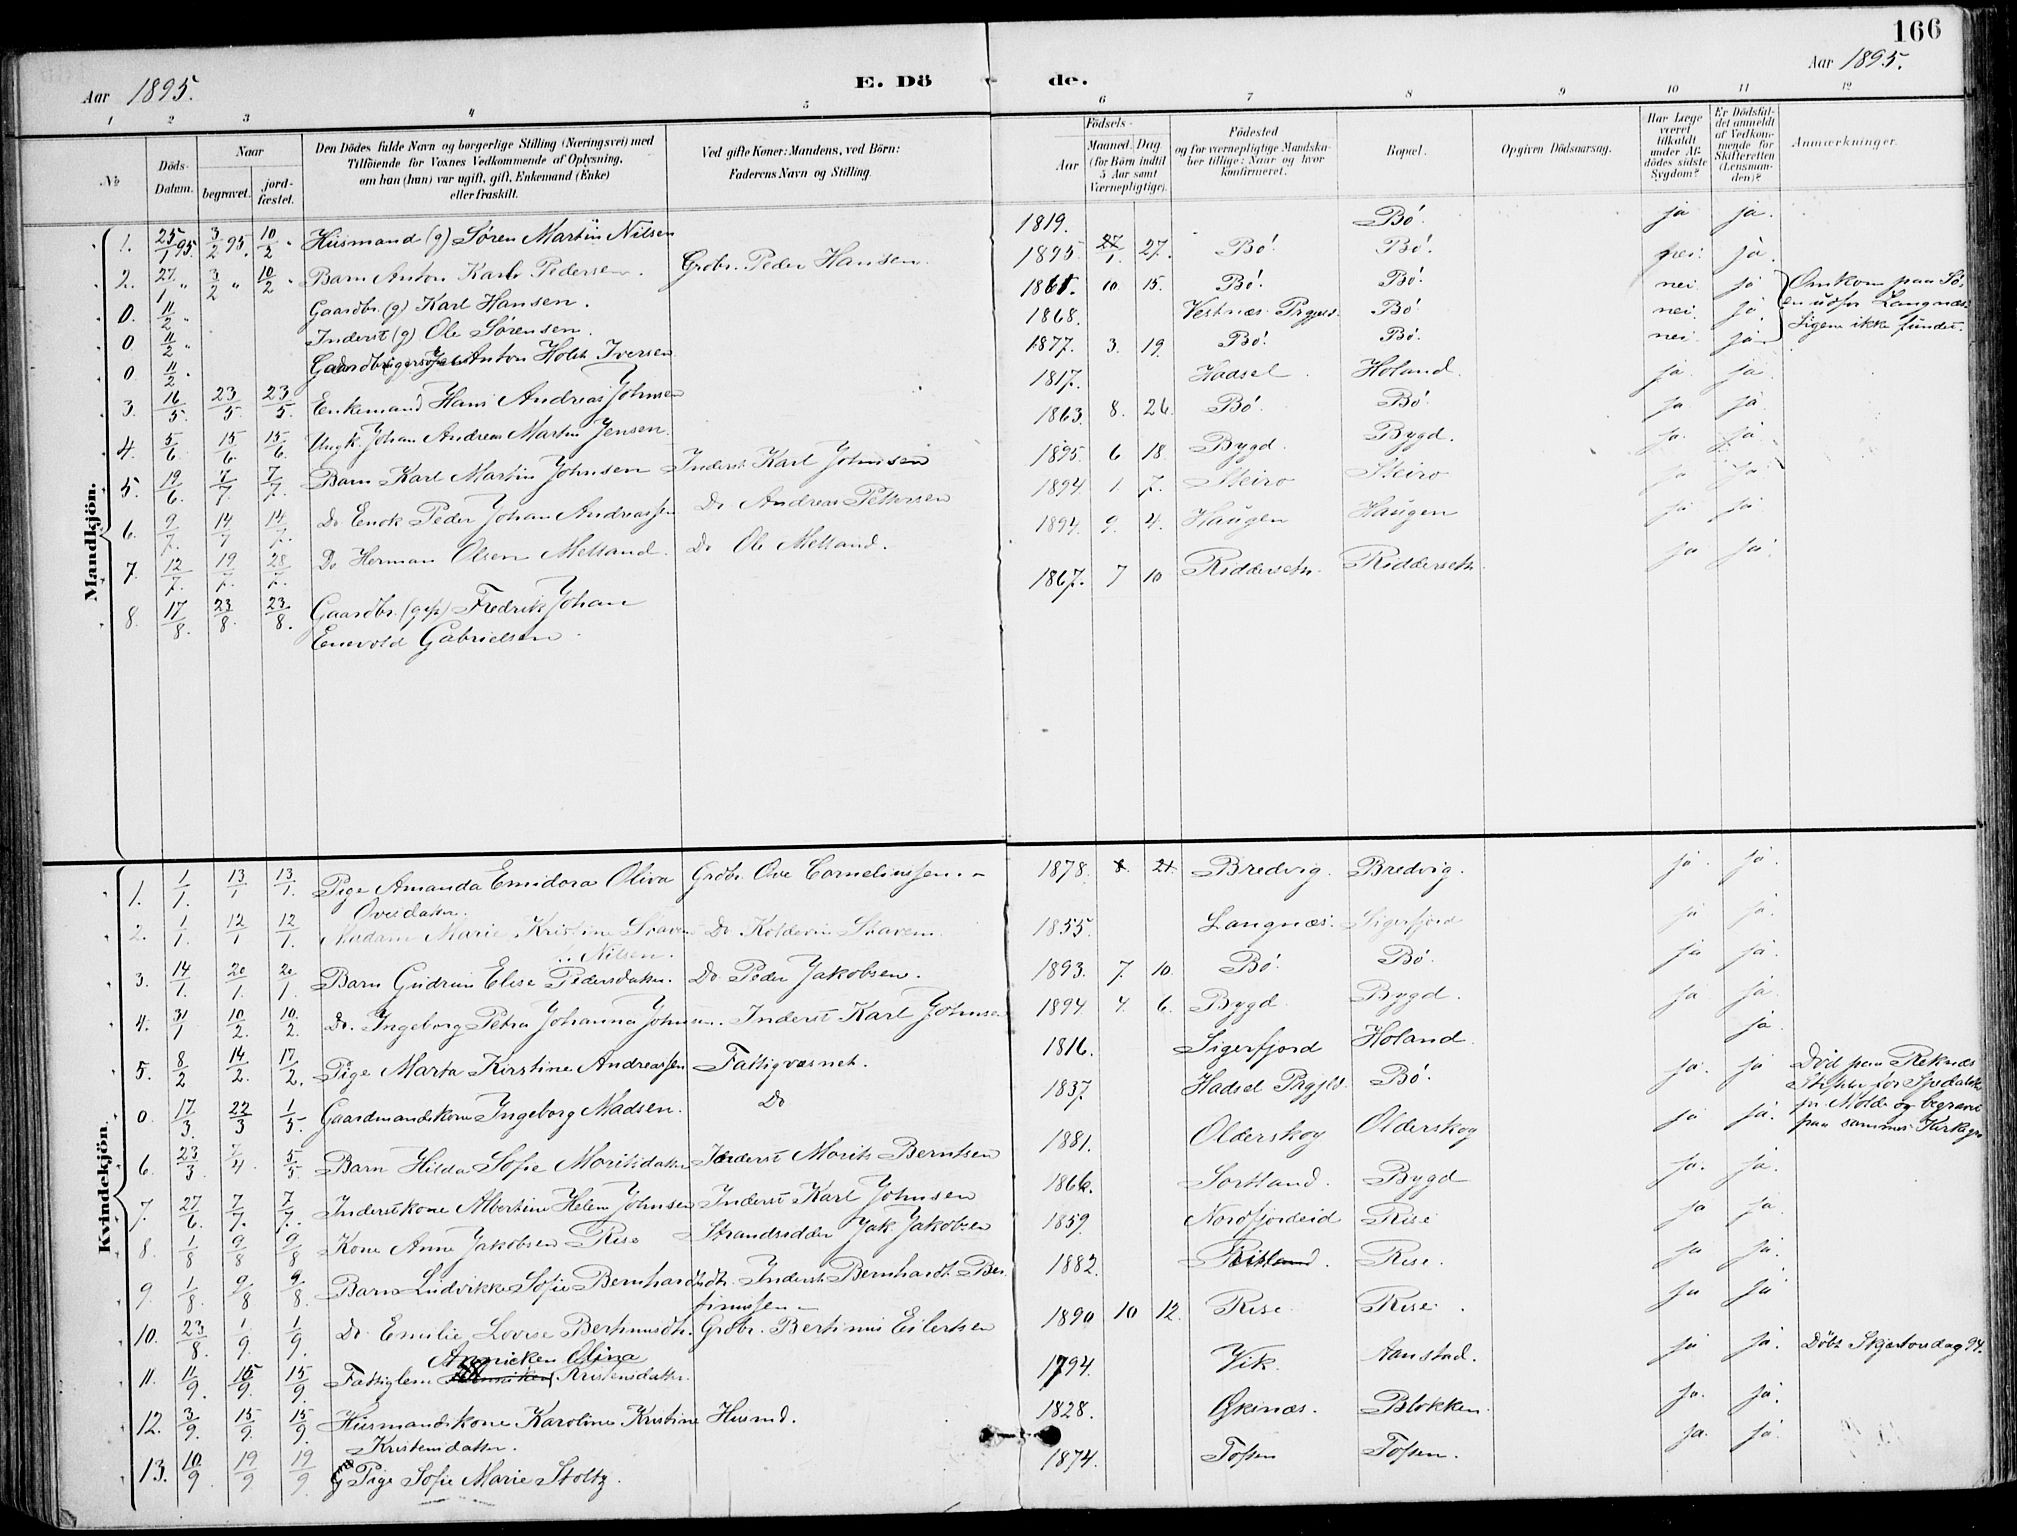 166
Aar 1895.
E. Dö de.
Aar 1895.
1 2 3 4 5 6 7 8 9 10 11 12
No
Döds-Datum.
Naar
begravet.
jord-fæstet.
Den Dödes fulde Navn og borgerlige Stilling (Næringsvei) med
Tilföiende for Voxnes Vedkommende af Oplysning,
om han (hun) var ugift, gift, Enkemand (Enke)
eller fraskilt.
Ved gifte Koner: Mandens, ved Börn:
Faderens Navn og Stilling.
Födsels-
Aar
Maaned. Dag.
(for Börn indtil
5 Aar samt
Værnepligtige).
Födested
og for værnepligtige Mandska-
ber tillige: Naar og hvor
konfirmeret.
Bopæl.
Opgiven Dödsaarsag.
Har Læge
været
tilkaldt
under Af-
dödes sidste
Sygdom?
Er Dödsfal-
det anmeldt
af Vedkom-
mende for
Skifteretten
(Lensman-
den)?
Anmærkninger.
Mandkjön.
1. 25/1 95. 3/2 95. 10/2 " Husmand (g) Søren Martin Nilsen 1819. Bø. ja ja.
2. 27/1 " 3/2 " 10/2 " Barn Anton Karlo Pedersen. Grdbr. Peder Hansen. 1895. 27/1. 27. Bø. Bø. nei. ja.
0. 11/2 " Gaardbr. (g) Karl Hansen. 10 15. Bø. Bø. nei ja
0 11/2 " Inderst (g) Ole Sørensen. 1868. Vestnæs Prgjeld. Bø nei. ja
0 11/2 " Anton Holst Iversen 1877. 3. 19. Bø. Bø. nei. ja
Omkom paa Sø-
en udfor Langnæs.
Ligene ikke fundet.
3. 16/5 23/5. 23/5. Enkemand Hans Andreas Johnsen 1817. Hadsel. Holand. ja ja
4. 5/6 15/6. 15/6. Ungk. Johan Andreas Martin Jensen. 1863. 8. 26. Bø. Bø. ja ja
5. 19/6. 7/7. 7/7. Barn Karl Martin Johnsen Inderst Karl Johnsen 1895. 6 18. Bygd. Bygd. ja. ja
6. 9/7. 14/7 14/7. Do Enok Peder Johan Andreassen Do Andreas Pettersen 1894. 1. 7. Steiro Steiro ja ja
7. 12/7. 19/7. 28/7. Do Herman Olsen Melland. Do Ole Melland. 1894. 9. 4. Haugen Haugen ja ja
8. 17/8. 23/8. 23/8. Gaardbr. Fredrik Johan 1867. 7 10 Ridderseth. Ridderseth. ja ja.
Enevold Gabrielsen.
Kvindekjön.
1. 1/1. 13/1 13/1. Pige Amanda Emidora Oliva Grdbr. Ove Corneliussen. 1878. 8. 21. Bredvig. Bredvig. ja. ja.
Ovesdatter.
2. 1/1. 12/1 12/1. Madam Marie Kristine Staven Do Koldevin Stavem. 1855. Langnæs. Sigerfjord ja ja.
Nilsen.
3. 14/1. 20/1. 20/1. Barn Gudrun Elise Pedersdatter. Do Peder Jakobsen. 1893. 7. 10. Bø. Bø. ja ja.
4. 31/1 10/2. 10/2. Do. Ingeborg Petra Johanna Johnsen. Inderst Karl Johnsen 1894. 4. 6. Bygd Bygd. ja ja.
5. 8/2 14/2. 17/2. Pige Marta Kirstine Andreassen Fattigvæsnet. 1816. Sigerfjord Holand. ja.
0 17/3. 22/3 1/5. Gaardmandskone Ingeborg Madsen. Do 1837. Hadsel Prgjld. Bø. ja. ja
Død paa Reknæs
for Spedalske
Molde og begravet
paa sammes Kirkegrd
6. 23/3 7/4. 5/5. Barn Hilda Sofie Moritsdatter Inderst Morits Berntsen 1881. Olderskog Olderskog ja ja.
7. 27/6. 7/7. 7/7. Inderstkone Albertine Helene Johnsen Inderst Karl Johnsen 1866. Sortland. Bygd ja. ja.
8. 1/8 9/8 9/8 Kone Anne Jakobsen Rise Strandsidder Jak. Jakobsen 1859. Nordfjordeid Rise ja ja.
9 1/8. 9/8 9/8. Barn Ludvikke Sofie Bernhardsdtr. Inderst Bernhardt Ber- 1882. Rise. ja ja.
10. 23/8. 1/9. 1/9. Do. Emilie Lovise Bertinusdtr. Grdbr. Bertinus Eilertsen 1890 10 12. Rise. Rise. ja ja
11. 11/9. 15/9. 15/9. Fattiglem Annicken Olina Kristensdatter. 1794. Vik. Aanstad. ja ja. Døbt Skjærtorsdag 94.
12. 3/9. 15/9. 15/9. Husmandskone Karoline Kristine Husmd. 1828. Øksnæs. Blokken. ja. ja.
Kristensdatter.
13. 10/9 19/9 19/9 Pige Sofie Marie Stoltz. 1874. Tofsen Tofsen. ja. ja.